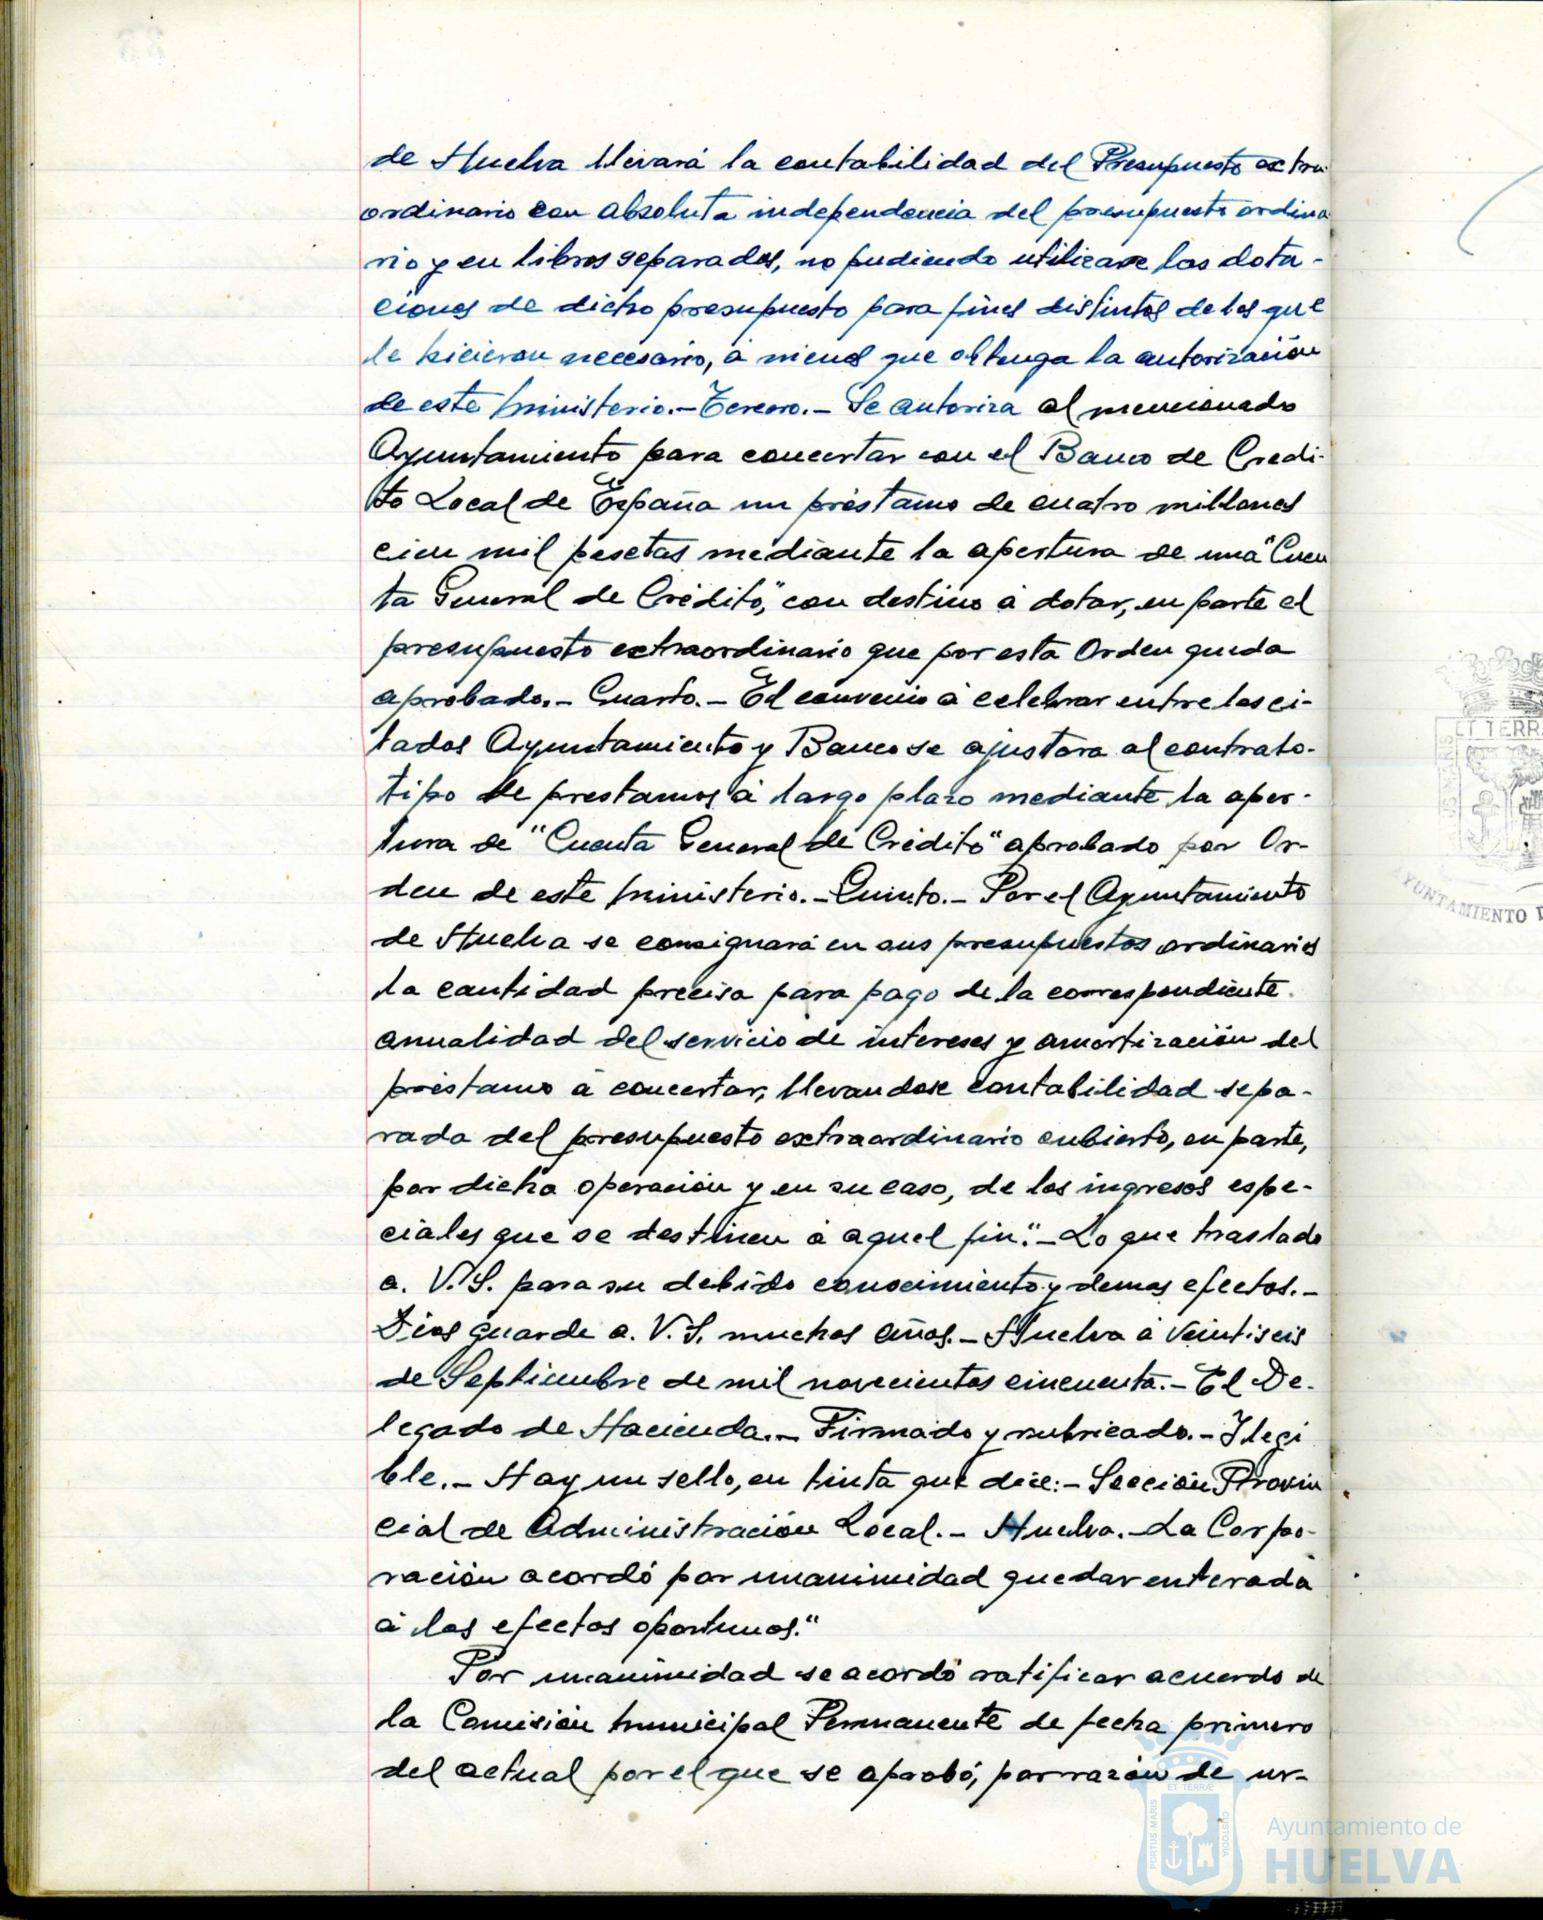 de Huelva llevará la contabilidad del Presupuesto extra
ordinario con absoluta independencia del presupuesto ordina
rio y en libros separados, no pudiendo utilizarse las dota-
ciones de dicho presupuesto para fines distintos de los que
le hicieron necesario, á menos que obtenga la autorización
de este Ministerio.- Tercero.- Se autoriza al mencionado
Ayuntamiento para concertar con el Banco de Credi-
to Local de España un préstamo de cuatro millones
cien mil pesetas mediante la apertura de una "Cuen
ta General de Crédito", con destino á dotar, en parte el
presupuesto extraordinario que por esta Orden queda
aprobado.- Cuarto.- El convenio á celebrar entre los ci-
tados Ayuntamiento y Banco se ajustara al contrato-
tipo de prestamos á largo plazo mediante la aper-
tura de "Cuenta General de Crédito" aprobado por Or-
den de este Ministerio.- Quinto.- Por el Ayuntamiento
de Huelva se consignará en sus presupuestos ordinarios
la cantidad precisa para pago de la correspondiente
anualidad del servicio de intereses y amortización del
préstamo á concertar, llevandose contabilidad sepa-
rada del presupuesto extraordinario cubierto, en parte,
por dicha operación y en su caso, de los ingresos espe-
ciales que se destinen á aquel fin".- Lo que traslado
a. V.S. para su debido conocimiento y demas efectos.-
Dios guarde a. V.S. muchos años.- Huelva á veintiseis
de Septiembre de mil novecientos cincuenta.- El De-
legado de Hacienda.- Firmado y rubricado.- Ilegi
ble.- Hay un sello, en tinta que dice:- Sección Provin
cial de Administración Local.- Huelva.- La Corpo-
ración acordó por unanimidad quedar enterada
á los efectos oportunos."
Por unanimidad se acordó ratificar acuerdo de
la Comisión Municipal Permanente de fecha primero
del actual por el que se aprobó, por razón de ur-
ET TERR
AYUNTAMIENTO
ET TERRÆ
PORTUS MARIS
CUSTODIA
Ayuntamiento de
HUELVA